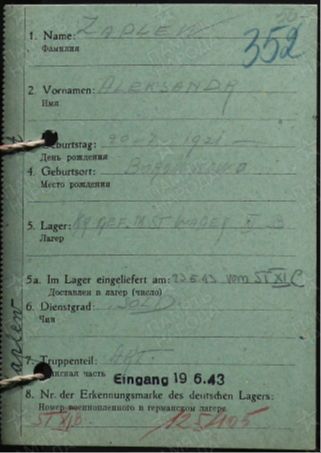 1. Name: ZAPLEW
Фамилия
352
2. Vornamen: ALEKSANDR
Имя
Geburtstag: 1921
День рождения
4. Geburtsort:
Место рождения
5. Lager: KRGEF. M ST LAGER B
Лагер
5a. Im Lager eingeliefert am: 23.6.43 vom ST XI C
Доставлен в лагер (число)
6. Dienstgrad: SOLD.
Чин
7. Truppenteil:
инская часть
Eingang 19 6.43
8. Nr. der Erkennungsmarke des deutschen Lagers:
Номер военнопленного в германском лагере
ST XI B. 125105
aplew